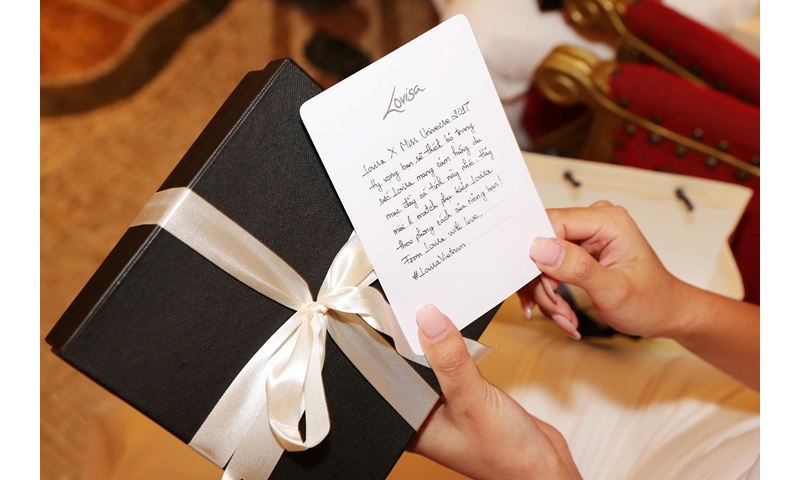 Lovisa
Lovisa X Miss Universe 2017
Hy vọng bạn sẽ thích bộ trang
sức Lovisa mang cảm hứng du
mục đầy cá tính này nhé. Hãy
mix & match phụ kiện Lovisa
theo phong cách của riêng bạn!
From Lovisa with love,
#LovisaVietnam